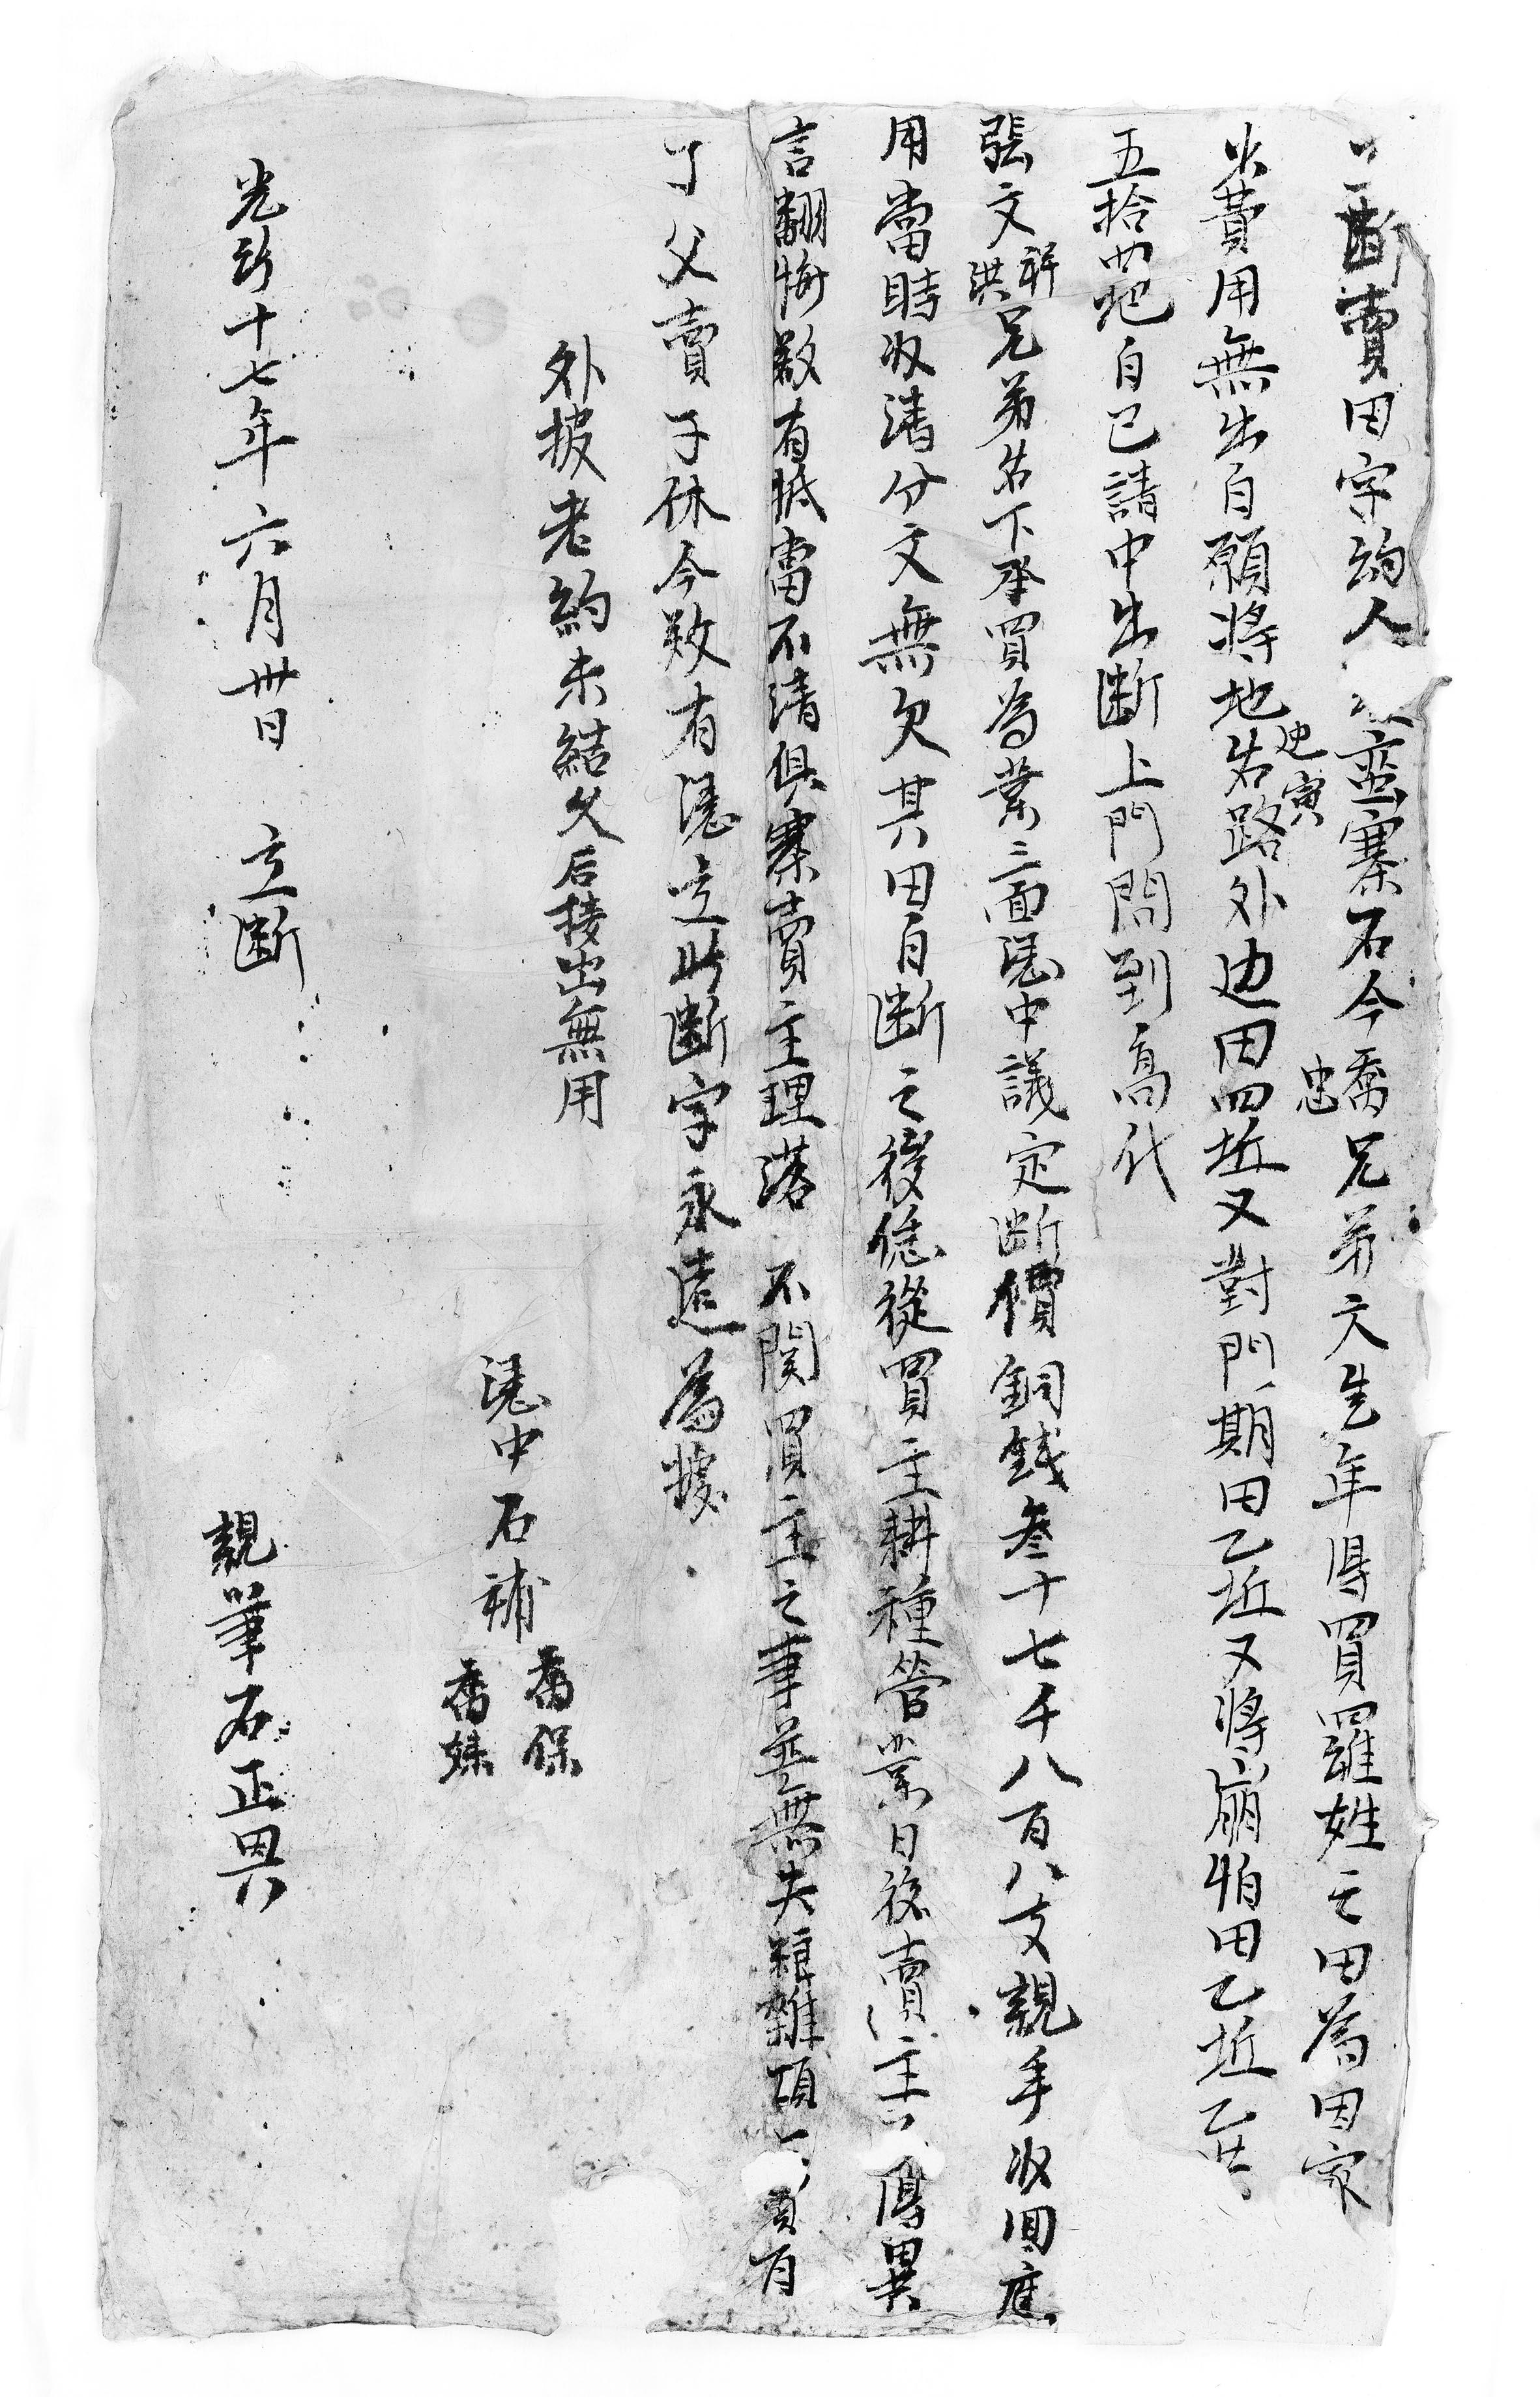 立斷賣田字約人 蛮寨石今喬忠兄弟六先年得買羅姓之田為因家
火費用無出自願將地名路外边田四坵又對門期田乙坵又將崩怕田乙坵乙共
迯寅
五拾四把自己請中出断上門問到高代
張文祥洪兄弟名下承買為業三面凴中議定断價銅錢叁十七千八百八文親手收回應
用當時收清分文無欠其田自断之後傯從買主耕種管業日後賣主 得異
言翻悔欵有抵當不清俱寨賣主理落不関買主之事並無夫粮雜項 賣
了父賣子休今欵有凴立此断字永遠為據
外披老約未結父后接出無用
凴中石補喬保喬妹
光緒十七年六月卅日 立断 親筆石正興